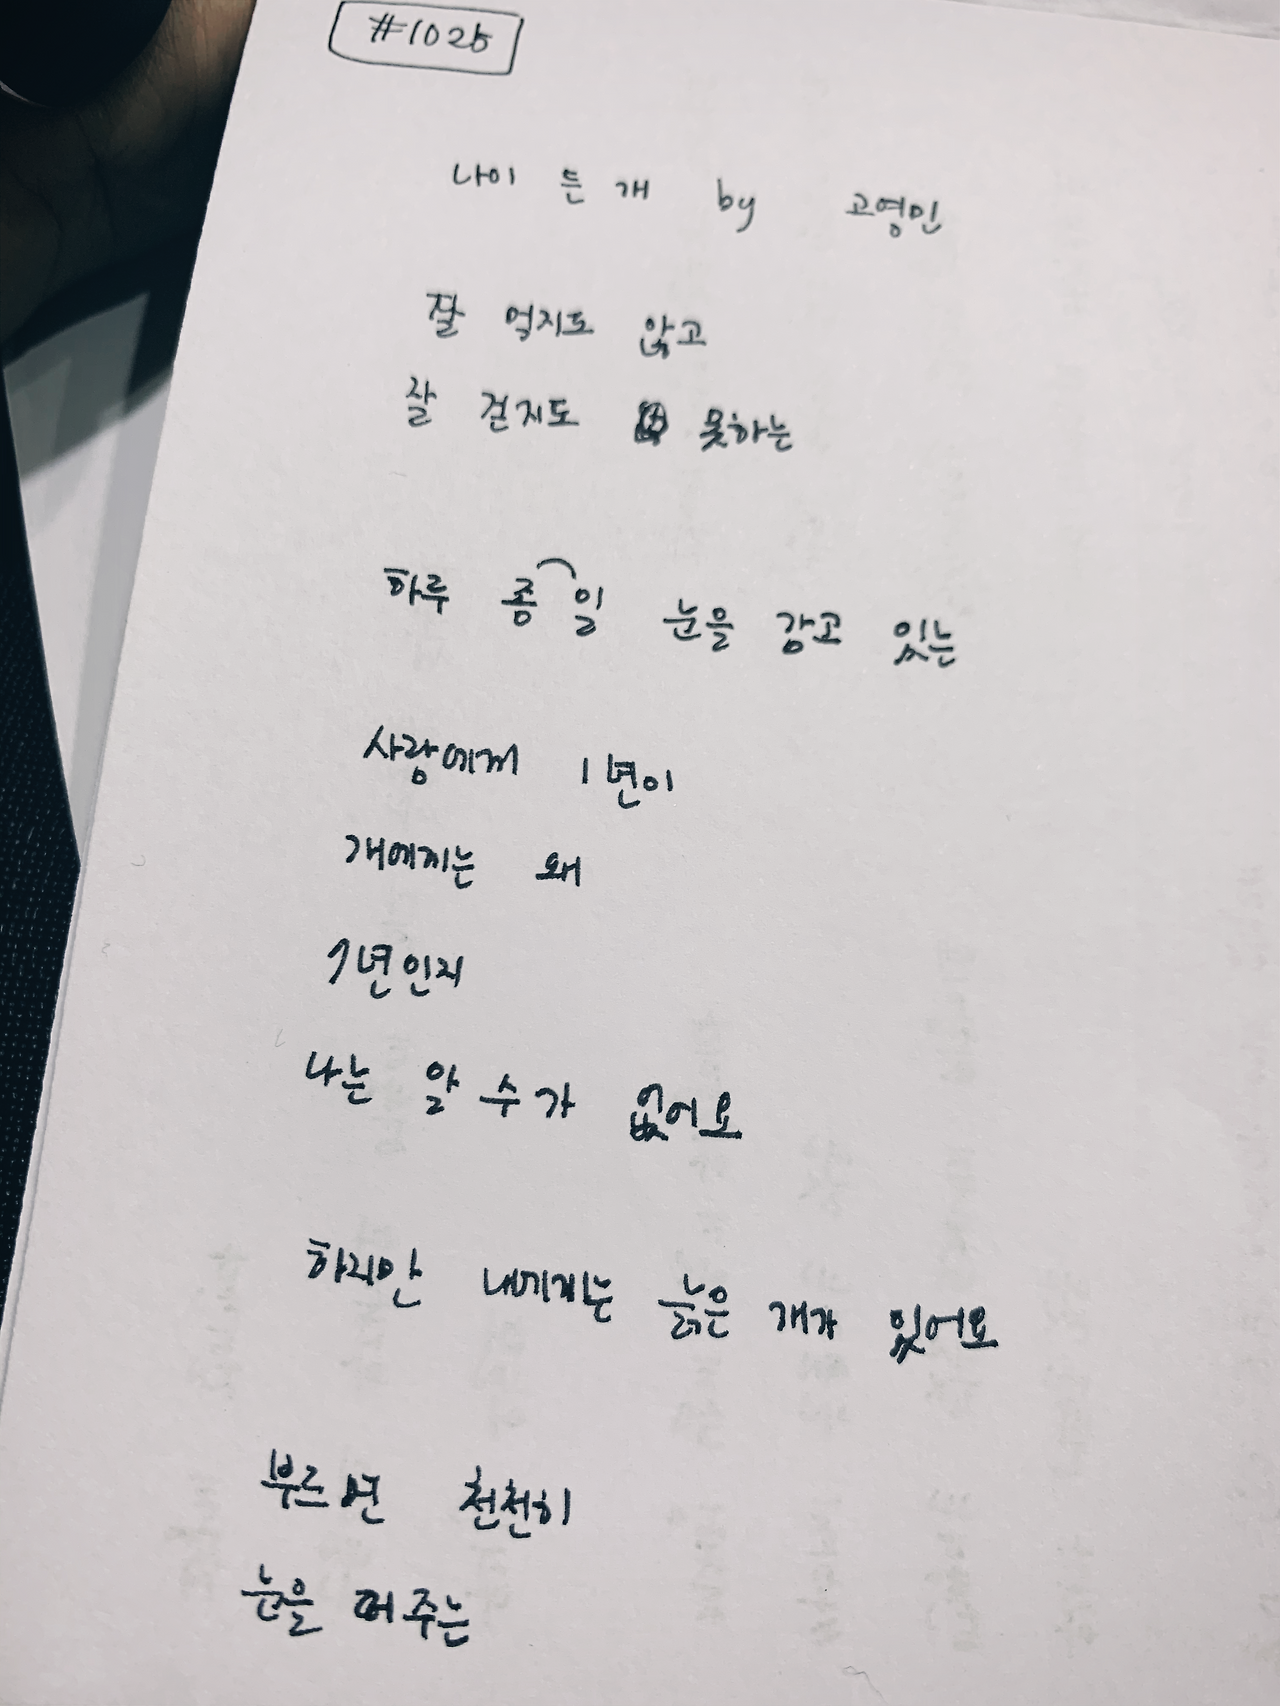 #1025
나이 든 개 by 고영민
잘 먹지도 않고
잘 걷지도 못하는
하루 종일 눈을 감고 있는
사람에게 1년이
개에게는 왜
7년인지
나는 알 수가 없어요
하지만 내게는 늙은 개가 있어요
부르면 천천히
눈을 떠주는